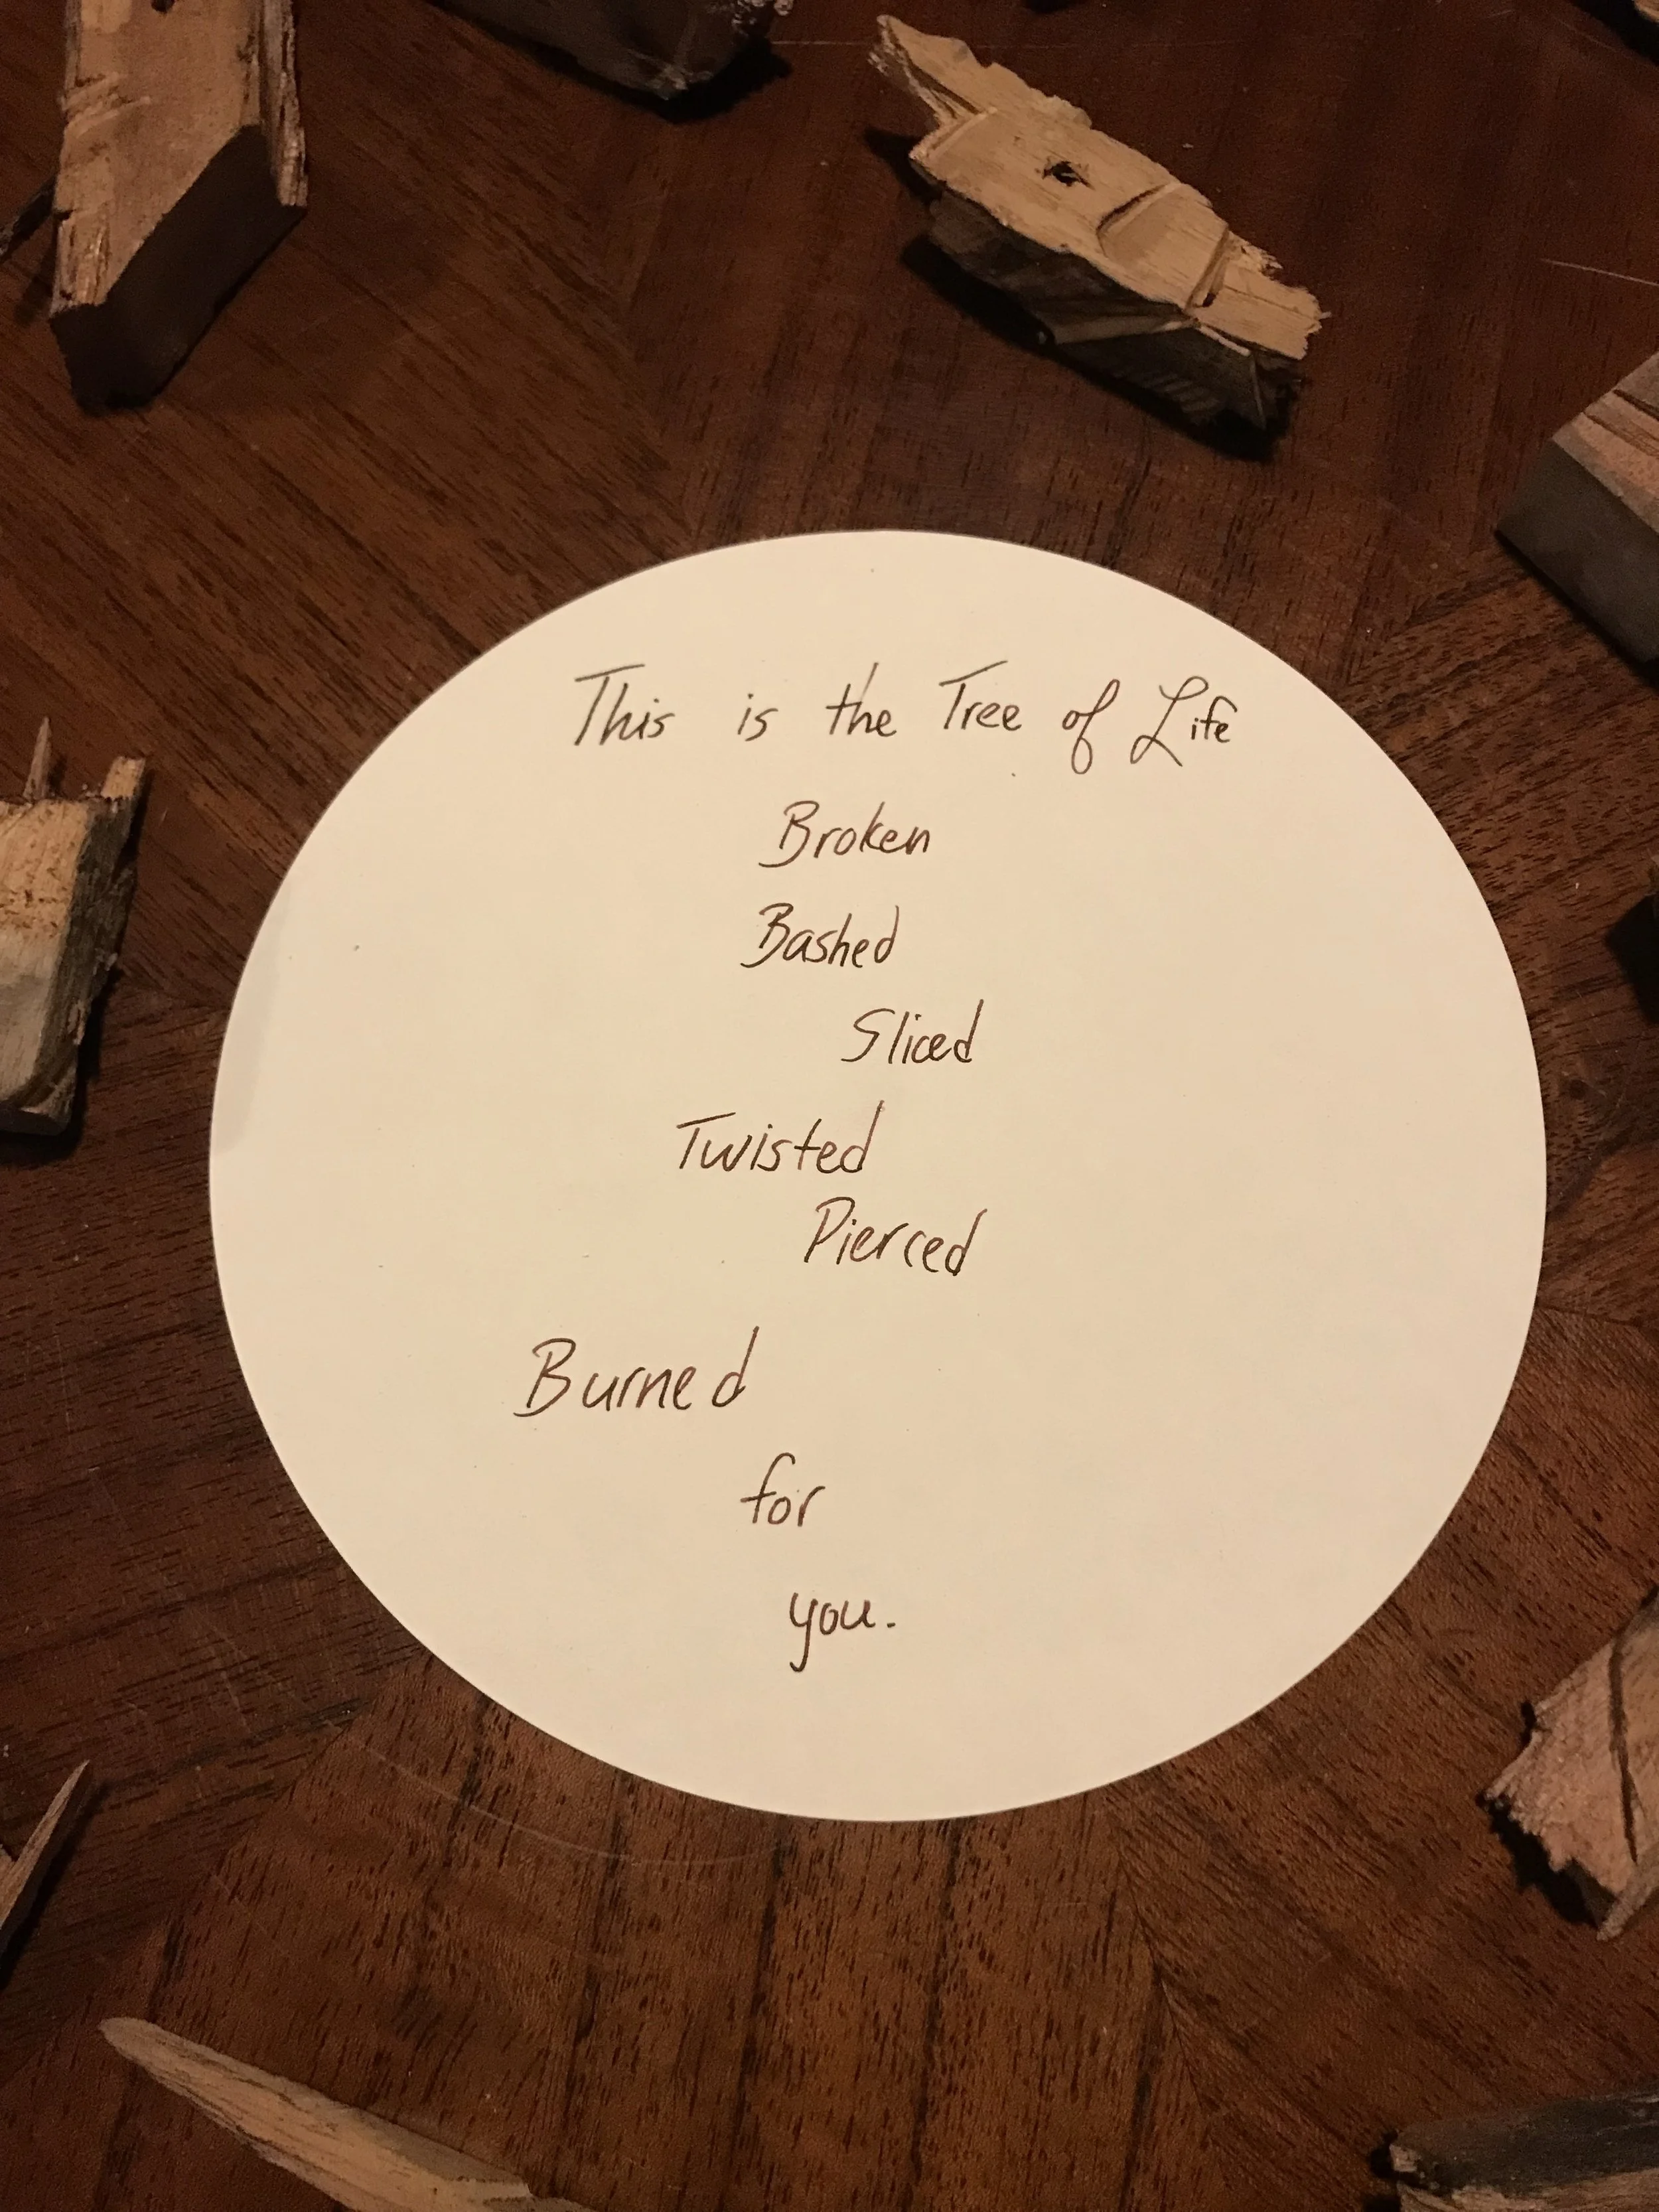 This is the Tree of Life
Broken
Bashed
Sliced
Twisted
Pierced
Burned
for
you.